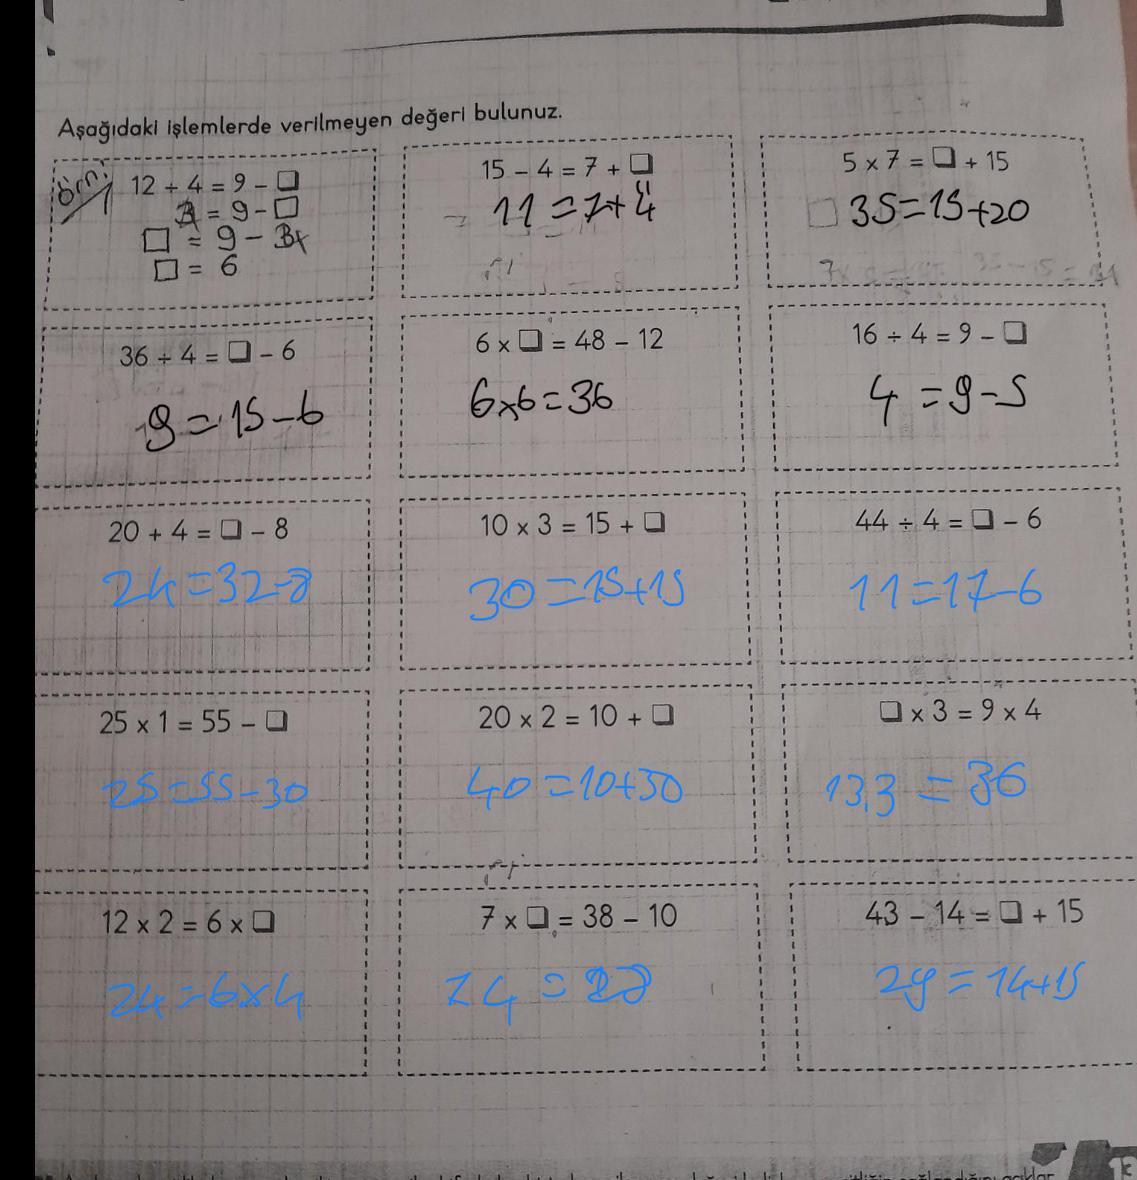 Aşağıdaki işlemlerde verilmeyen değeri bulunuz.
örn:
12 ÷ 4 = 9 - ☐
3 = 9 - ☐
☐ = 9 - 3
☐ = 6
15 - 4 = 7 + ☐
11 = 7 + 4
5 x 7 = ☐ + 15
☐ 35 = 15 + 20
36 ÷ 4 = ☐ - 6
9 = 15 - 6
6 x ☐ = 48 - 12
6 x 6 = 36
16 ÷ 4 = 9 - ☐
4 = 9 - 5
20 + 4 = ☐ - 8
24 = 32 - 8
10 x 3 = 15 + ☐
30 = 15 + 15
44 ÷ 4 = ☐ - 6
11 = 17 - 6
25 x 1 = 55 - ☐
25 = 55 - 30
20 x 2 = 10 + ☐
40 = 10 + 30
☐ x 3 = 9 x 4
13.3 = 36
12 x 2 = 6 x ☐
24 = 6 x 4
7 x ☐ = 38 - 10
7 4 = 28
43 - 14 = ☐ + 15
29 = 14 + 15
13